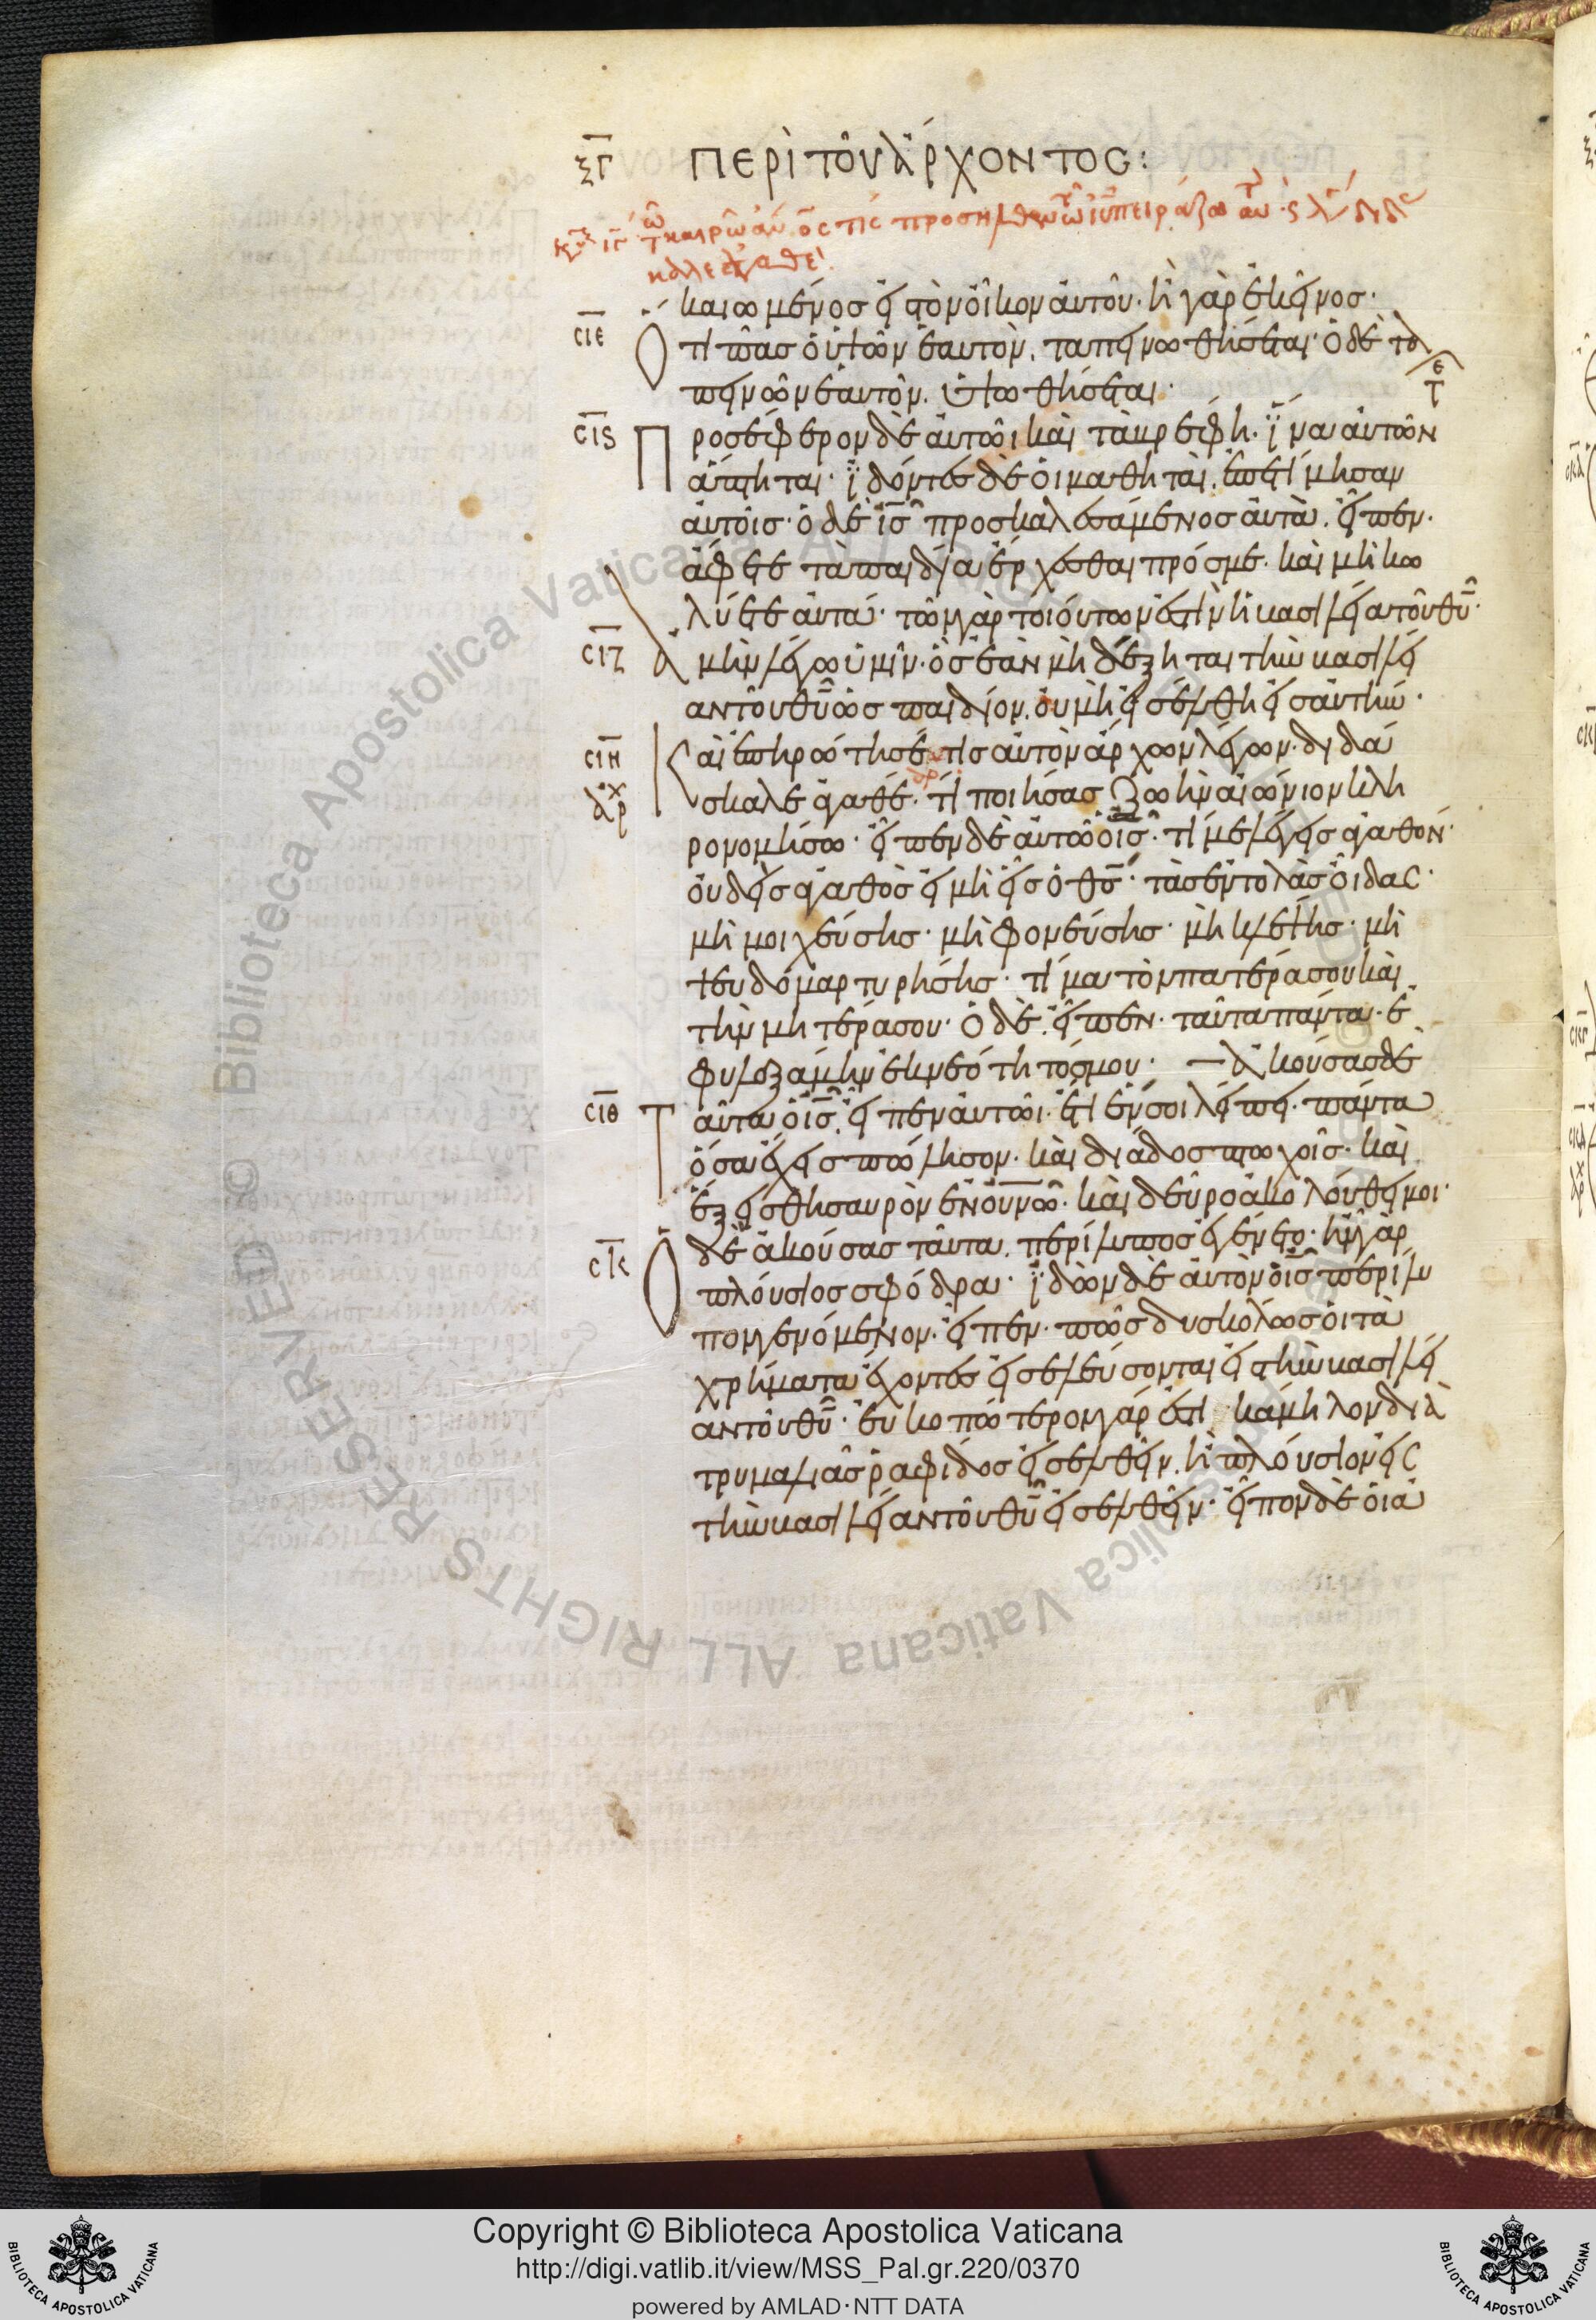 ξγ ΠΕΡὶ τοῦ ἌΡΧΟΝΤΟC:
ιγ καιρῶ ὅς τίς προσῆλθεν τῶ ιυ πειράζω
καιωμένος εἰς τὸν οἶκον αὐτοῦ· ἢ γὰρ ἐκεῖνος·
σιε Ὅ τι πᾶς ὁ ὑψῶν ἑαυτὸν, ταπεινωθήσεται· ὁ δὲ τα
πεινῶν ἑαυτὸν, ὑψωθήσεται·
σις Προσέφερον δὲ αὐτῶι καὶ τὰ βρέφη· ἵνα αὐτῶν
ἅπτηται· ἰδόντες δὲ οἱ μαθηταὶ, ἐπετίμησαν
αὐτοῖς· ὁ δὲ ις προσκαλεσάμενος αὐτὰ, εἶπεν·
ἄφετε τὰ παιδία ἔρχεσθαι πρός με· καὶ μὴ κω
λύετε αὐτά· τῶν γὰρ τοιούτων ἐστὶν ἡ βασιλεία τοῦ θυ·
σιζ ἀμὴν λέγω ὑμῖν· ὃς ἐὰν μὴ δέξηται τὴν βασιλεί
αν τοῦ θυ ὡς παιδίον, οὐ μὴ εἰσέλθη εἰς αὐτήν·
σιη Καὶ ἐπηρώτησέ τις αὐτὸν ἄρχων λέγων· διδά
αρχ σκαλε ἀγαθέ· τί ποιήσας ζωὴν αἰώνιον κλη
ρονομήσω· εἶπεν δὲ αὐτῶ ὁ ις· τί με λέγεις ἀγαθόν·
οὐδεὶς ἀγαθὸς εἰ μὴ εἷς ὁ θς· τὰς ἐντολὰς οἶδας·
μὴ μοιχεύσης· μὴ φονεύσης· μὴ κλέψης· μὴ
ψευδομαρτυρήσης· τίμα τὸν πατέρα σου καὶ
τὴν μητέρα σου· ὁ δὲ, εἶπεν· ταῦτα πάντα ἐ
φυλαξάμην ἐκ νεότητός μου· ἀκούσας δὲ
σιθ ταῦτα ὁ ις, εἶπεν αὐτῶι· ἔτι ἕν σοι λείπει· πάντα
ὅσα ἔχεις πώλησον· καὶ διάδος πτωχοῖς· καὶ
ἕξεις θησαυρὸν ἐν οὐνῶ· καὶ δεῦρο ἀκολούθει μοι·
σκ Ὁ δὲ ἀκούσας ταῦτα, περίλυπος ἐγένετο· ἦν γὰρ
πλούσιος σφόδρα· ἰδὼν δὲ αὐτὸν ὁ ις περίλυ
πον γενόμενον· εἶπεν· πῶς δυσκόλως οἱ τὰ
χρήματα ἔχοντες εἰσελεύσονται εἰς τὴν βασιλεί
αν τοῦ θυ· εὐκοπώτερον γάρ ἐστι κάμηλον διὰ
τρυμαλιᾶς ῥαφίδος εἰσελθεῖν, ἢ πλούσιον εἰς
τὴν βασιλείαν τοῦ θυ εἰσελθεῖν· εἶπον δὲ οἱ ἀ
© Biblioteca Apostolica Vaticana ALL RIGHTS RESERVED
Copyright © Biblioteca Apostolica Vaticana
http://digi.vatlib.it/view/MSS_Pal.gr.220/0370
powered by AMLAD·NTT DATA
BIBLIOTECA APOSTOLICA VATICANA
BIBLIOTECA APOSTOLICA VATICANA